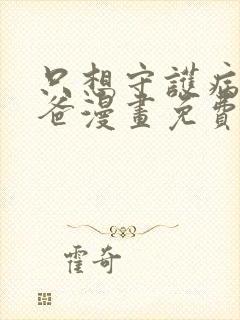 只想守護病
爸漫畫免費
霍奇